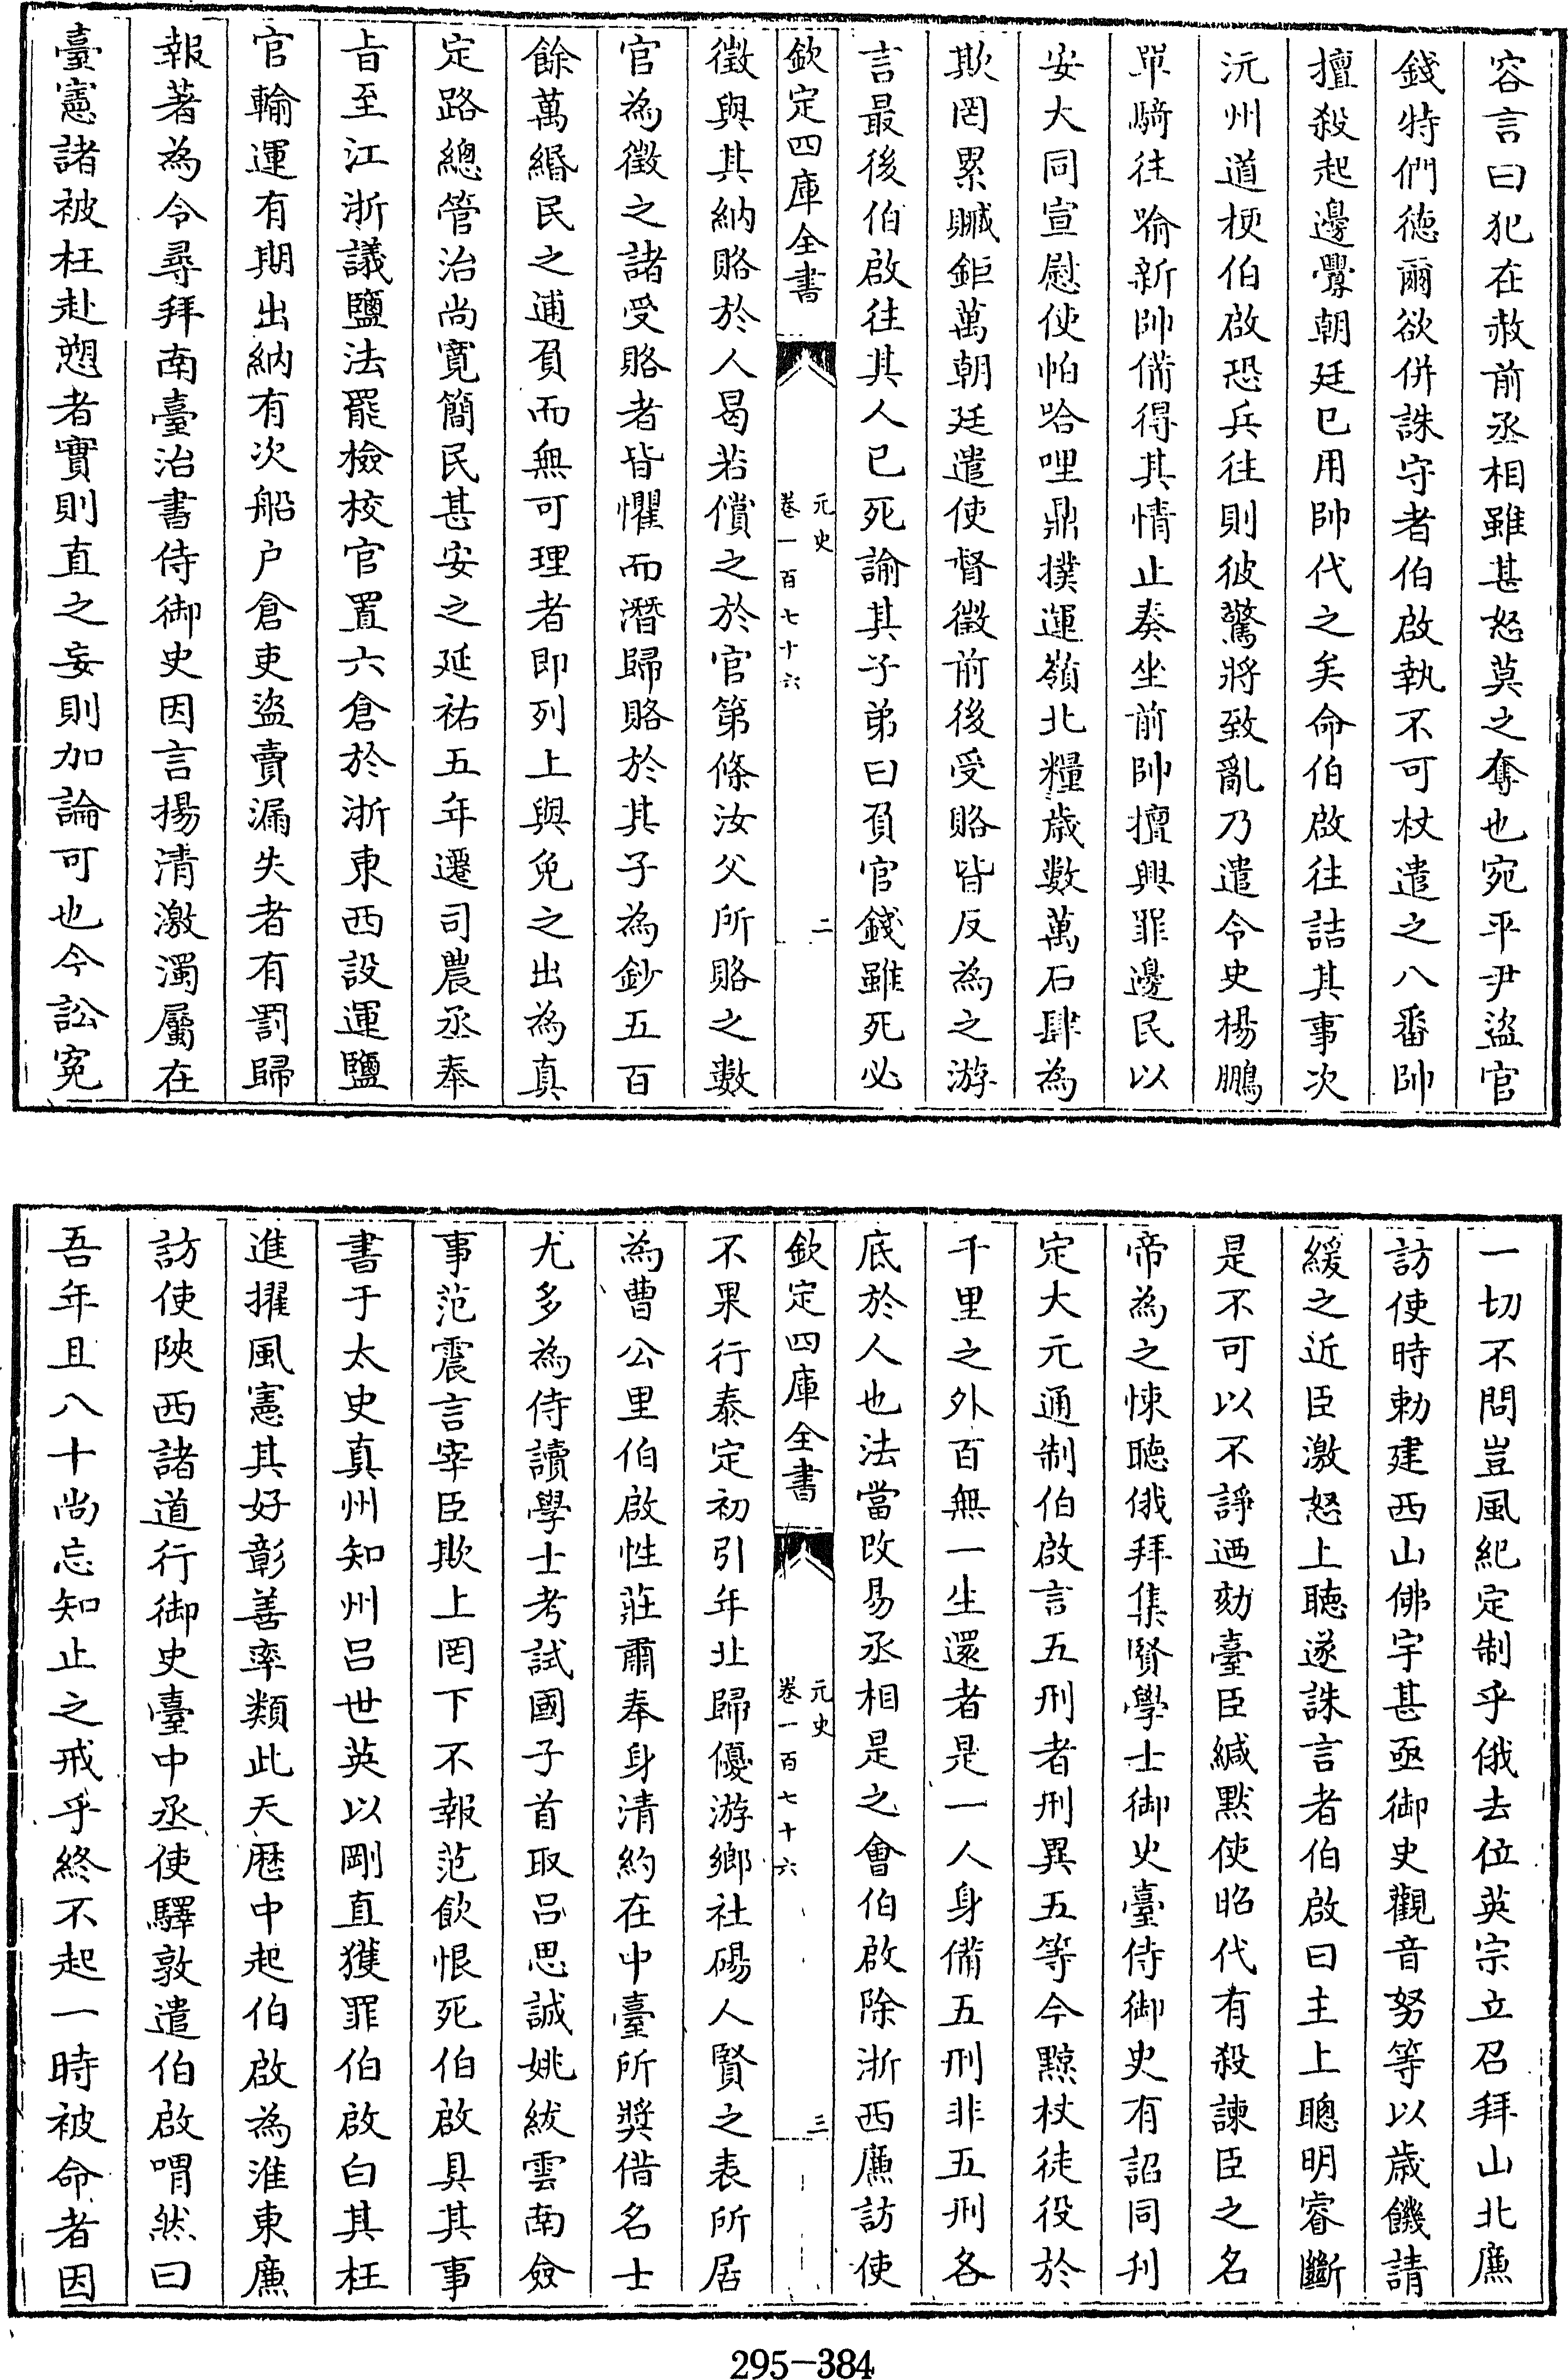 容言曰犯在赦前丞相雖甚怒莫之奪也宛平尹盜官
錢特們德爾欲併誅守者伯啟執不可杖遣之八番帥
擅殺起邊釁朝廷已用帥代之矣命伯啟往詰其事次
沅州道梗伯啟恐兵往則彼驚將致亂乃遣令史楊鵬
單騎往喻新帥備得其情止奏坐前帥擅興罪邊民以
安大同宣慰使怕哈哩鼎撲運嶺北糧歳數萬石肆為
欺罔累贓鉅萬朝廷遣使督徵前後受賂皆反為之游
言最後伯啟往其人已死諭其子弟曰負官錢雖死必
欽定四庫全書
元史
卷一百七十六
二
徵與其納賂於人曷若償之於官第條汝父所賂之數
官為徵之諸受賂者皆懼而潛歸賂於其子為鈔五百
餘萬緡民之逋負而無可理者即列上與免之出為真
定路總管治尚寛簡民甚安之延祐五年遷司農丞奉
旨至江浙議鹽法罷檢校官置六倉於浙東西設運鹽
官輸運有期出納有次船户倉吏盜賣漏失者有罰歸
報著為令尋拜南臺治書侍御史因言揚清激濁屬在
臺憲諸被枉赴愬者實則直之妄則加論可也今訟寃
一切不問豈風紀定制乎俄去位英宗立召拜山北廉
訪使時勅建西山佛宇甚亟御史觀音努等以歳饑請
緩之近臣激怒上聴遂誅言者伯啟曰主上聰明睿斷
是不可以不諍迺劾臺臣緘默使昭代有殺諫臣之名
帝為之悚聴俄拜集賢學士御史臺侍御史有詔同刋
定大元通制伯啟言五刑者刑異五等今黥杖徒役於
千里之外百無一生還者是一人身備五刑非五刑各
底於人也法當改易丞相是之會伯啟除浙西廉訪使
欽定四庫全書
元史
卷一百七十六
三
不果行泰定初引年北歸優游鄉社碭人賢之表所居
為曹公里伯啟性莊肅奉身清約在中臺所奬借名士
尤多為侍讀學士考試國子首取呂思誠姚紱雲南僉
事范震言宰臣欺上罔下不報范飲恨死伯啟具其事
書于太史真州知州呂世英以剛直獲罪伯啟白其枉
進擢風憲其好彰善率類此天厯中起伯啟為淮東廉
訪使陜西諸道行御史臺中丞使驛敦遣伯啟喟然曰
吾年且八十尚忘知止之戒乎終不起一時被命者因
295-384